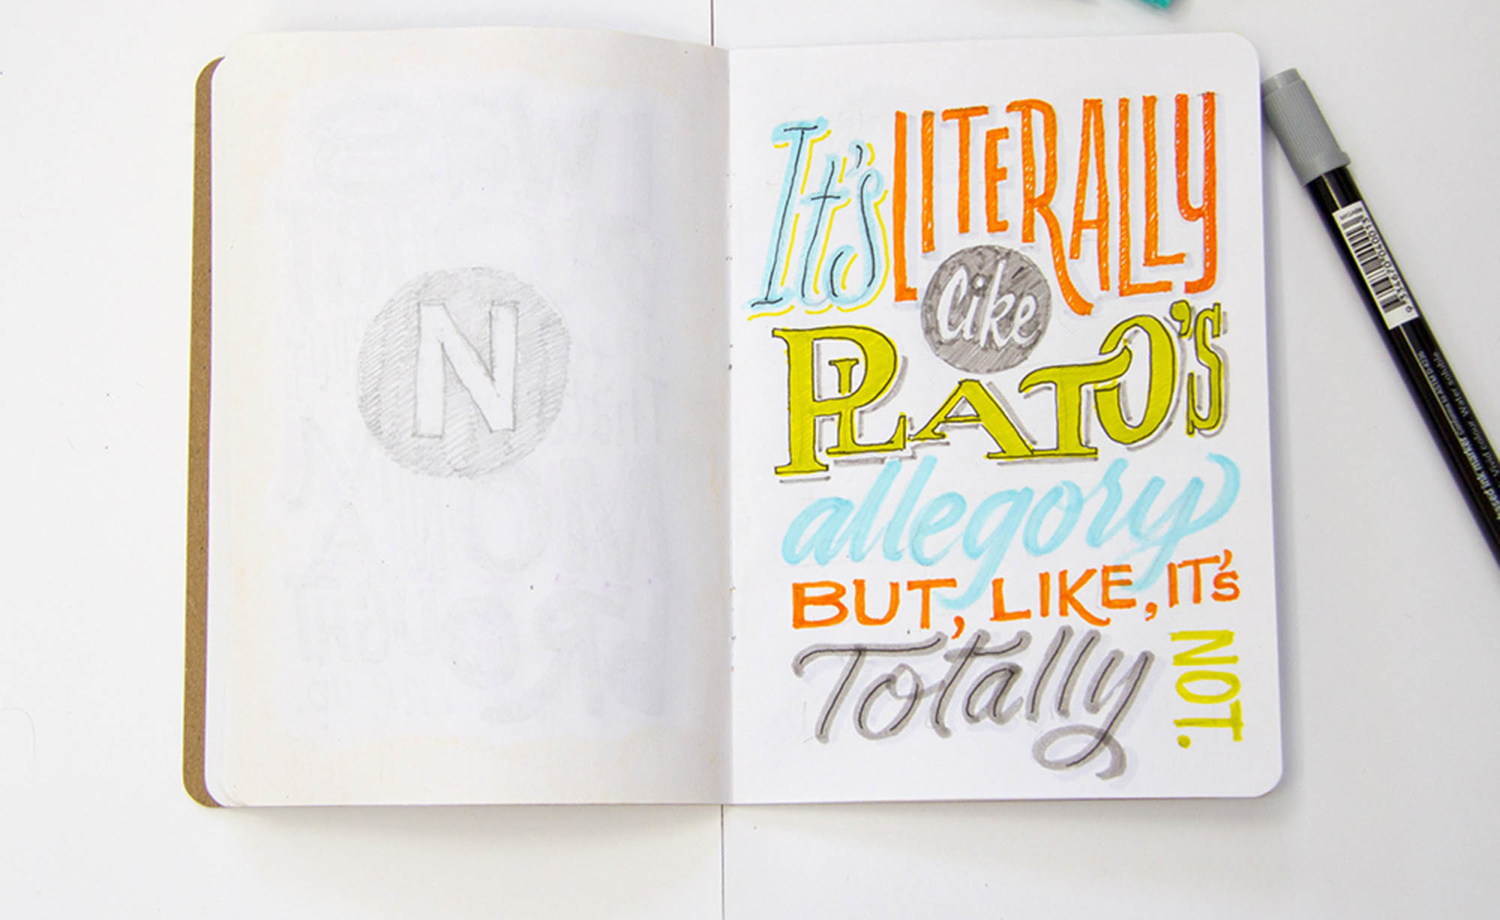 N
It's LITERALLY
Like
PLATO'S
allegory
BUT, LIKE, IT'S
Totally
NOT.